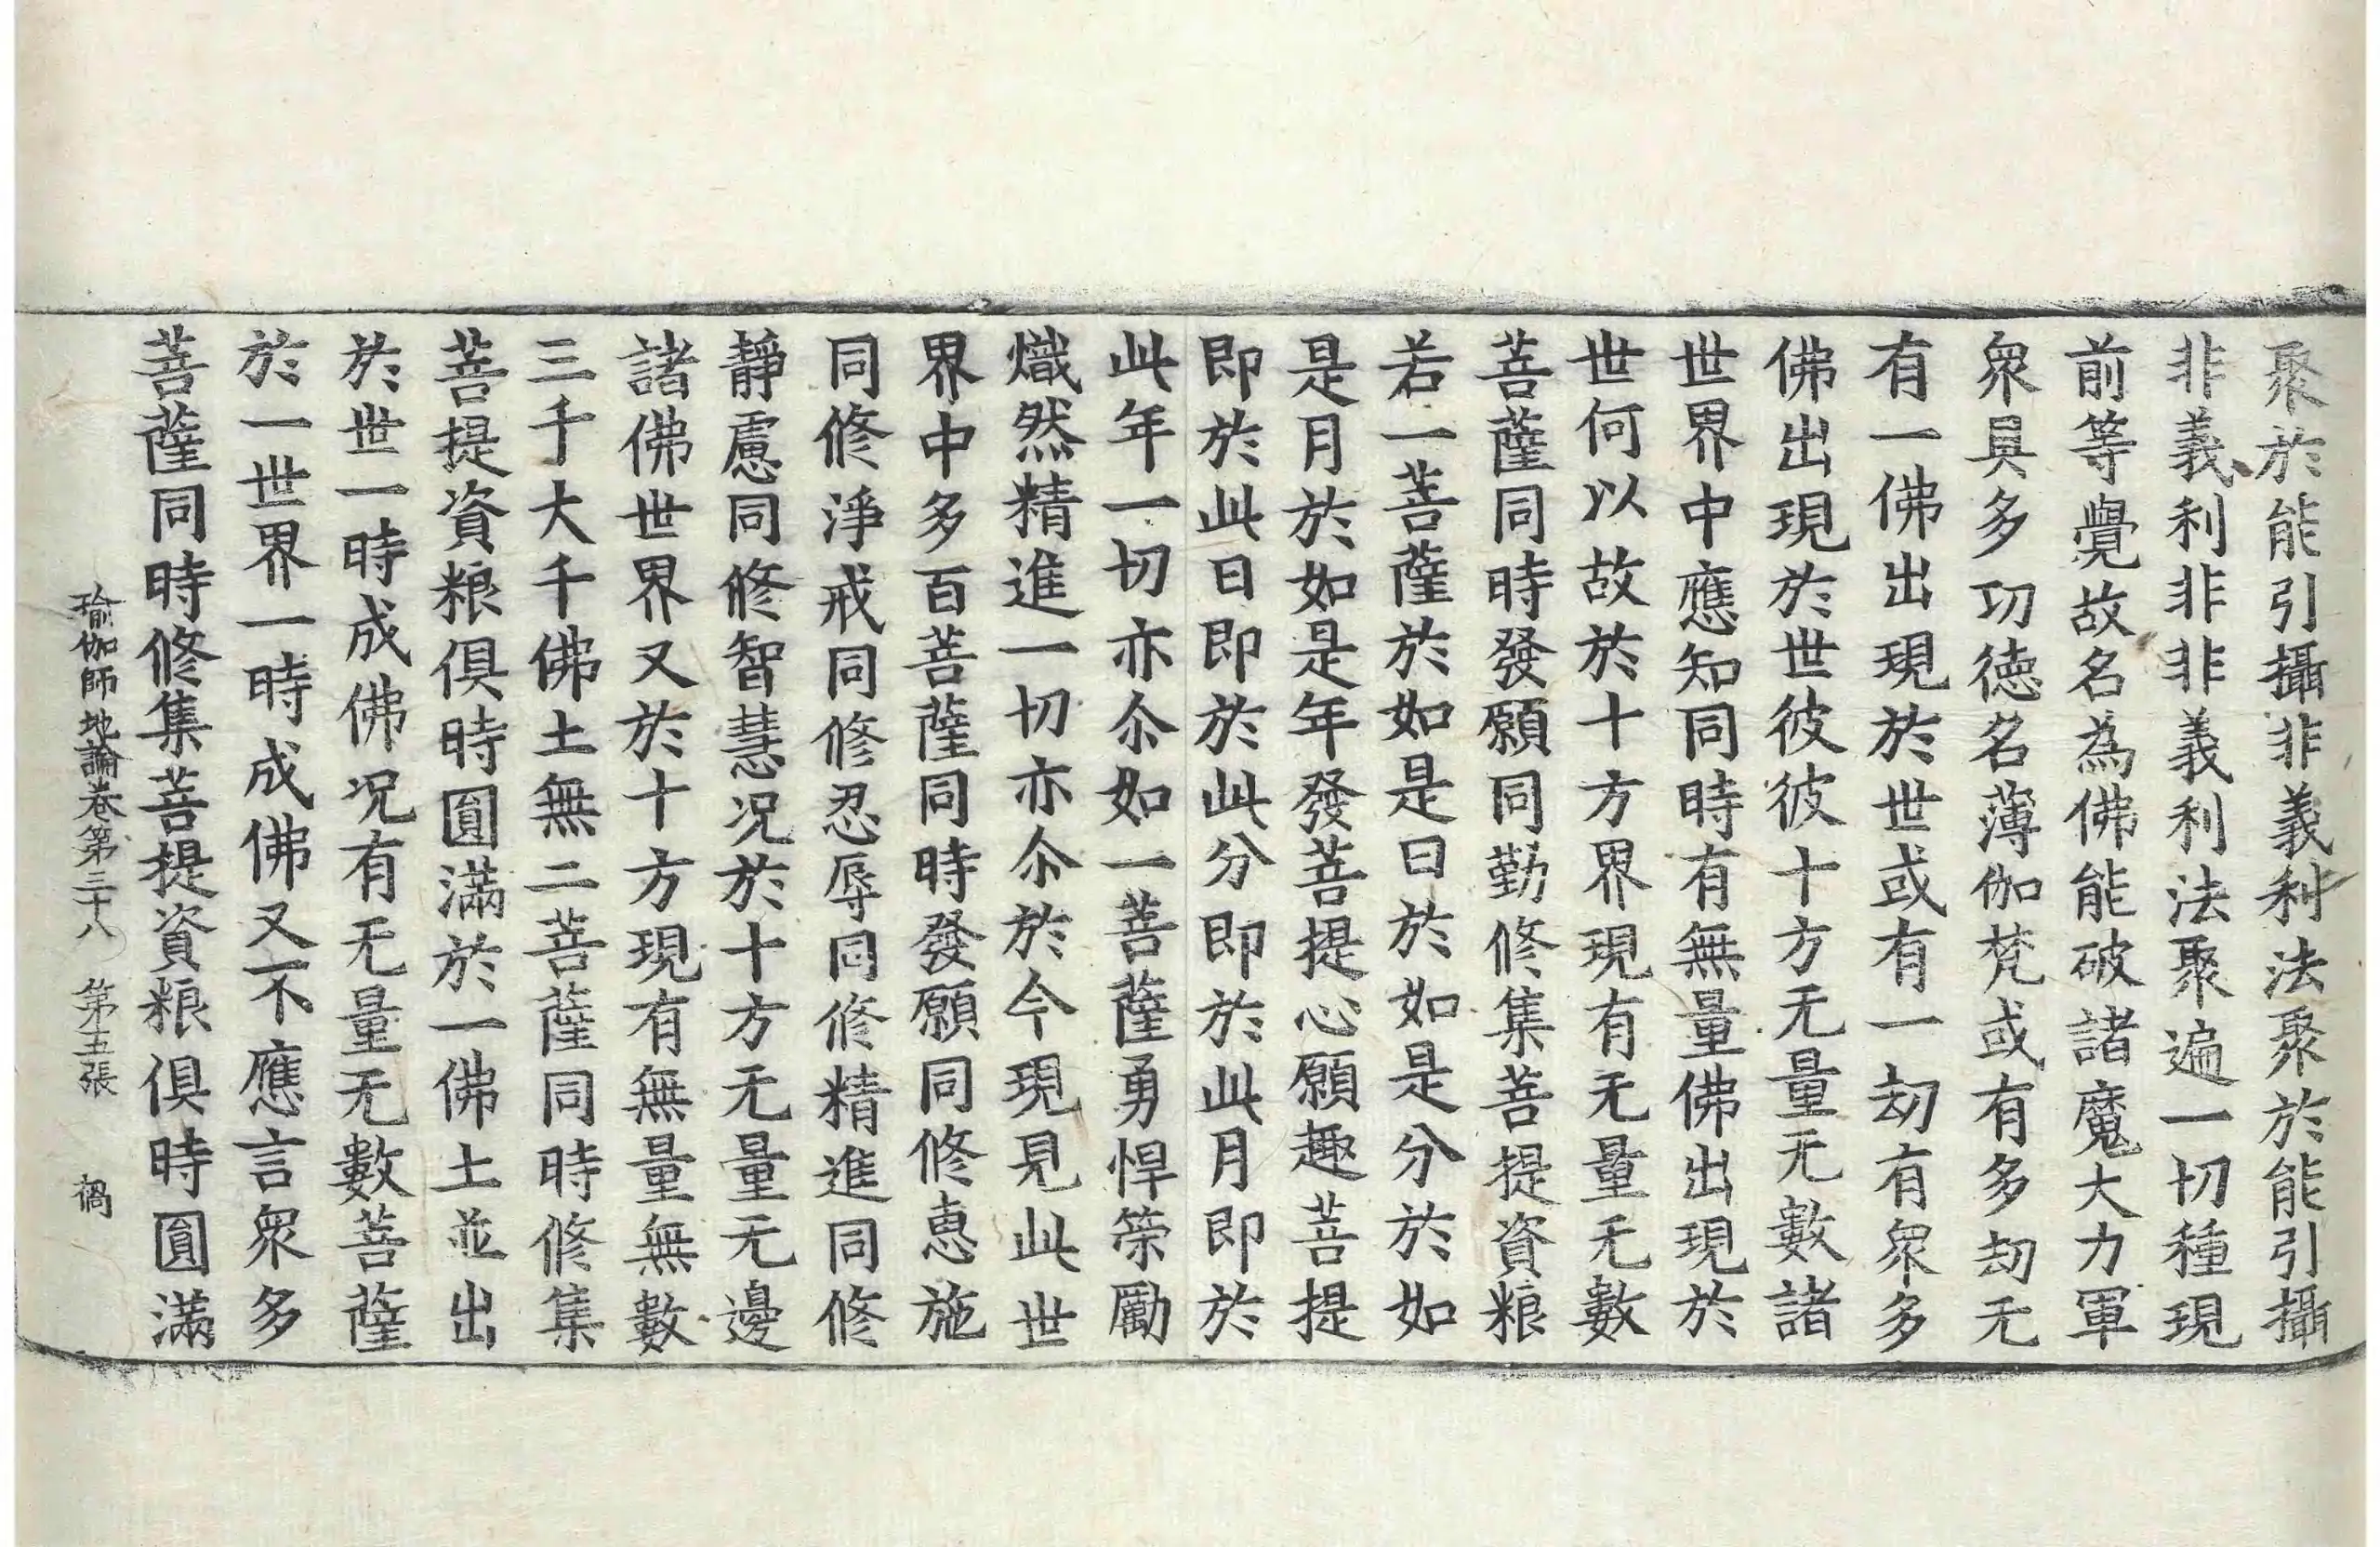 聚於能引攝非義利法聚於能引攝
非義利非非義利法聚遍一切種現
前等覺故名為佛能破諸魔大力軍
衆具多功德名薄伽梵或有多劫无
有一佛出現於世或有一劫有衆多
佛出現於世彼彼十方无量无數諸
世界中應知同時有無量佛出現於
世何以故於十方界現有无量无數
菩薩同時發願同勤修集菩提資粮
若一菩薩於如是日於如是分於如
是月於如是年發菩提心願趣菩提
即於此日即於此分即於此月即於
此年一切亦尒如一菩薩勇悍策勵
熾然精進一切亦尒於今現見此世
界中多百菩薩同時發願同修惠施
同修淨戒同修忍辱同修精進同修
靜慮同修智慧况於十方无量无邊
諸佛世界又於十方現有無量無數
三千大千佛土無二菩薩同時修集
菩提資粮俱時圓滿於一佛土並出
於世一時成佛况有无量无數菩薩
於一世界一時成佛又不應言衆多
菩薩同時修集菩提資粮俱時圓滿
瑜伽師地論卷第三十八 第五張 禍